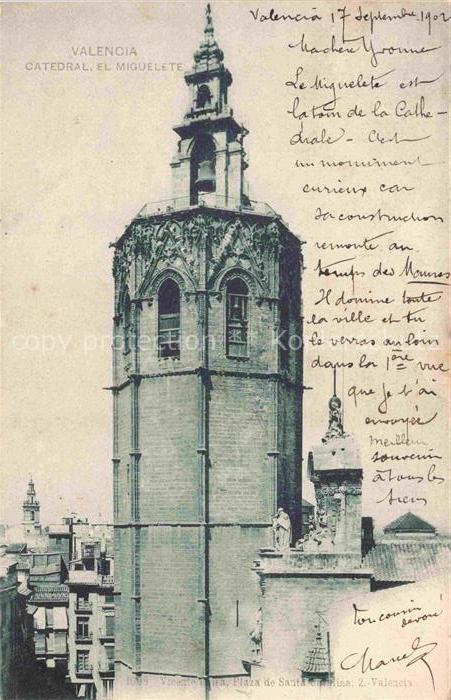 Valencia 17 Septembre 1902
VALENCIA
CATEDRAL, EL MIGUELETE
Ma chère Yvonne
Le Miguelete est
la tour de la Cathé-
drale - C'est
un monument
curieux car
sa construction
remonte au
temps des Maures
Il domine toute
la ville et tu
le verras au loin
dans la 1ère vue
que je t'ai
envoyée
Meilleur
souvenir
à tous les
tiens
Ton cousin
dévoué
Marcel
copy protection
Plaza de Santa Catalina, 2.-Valencia